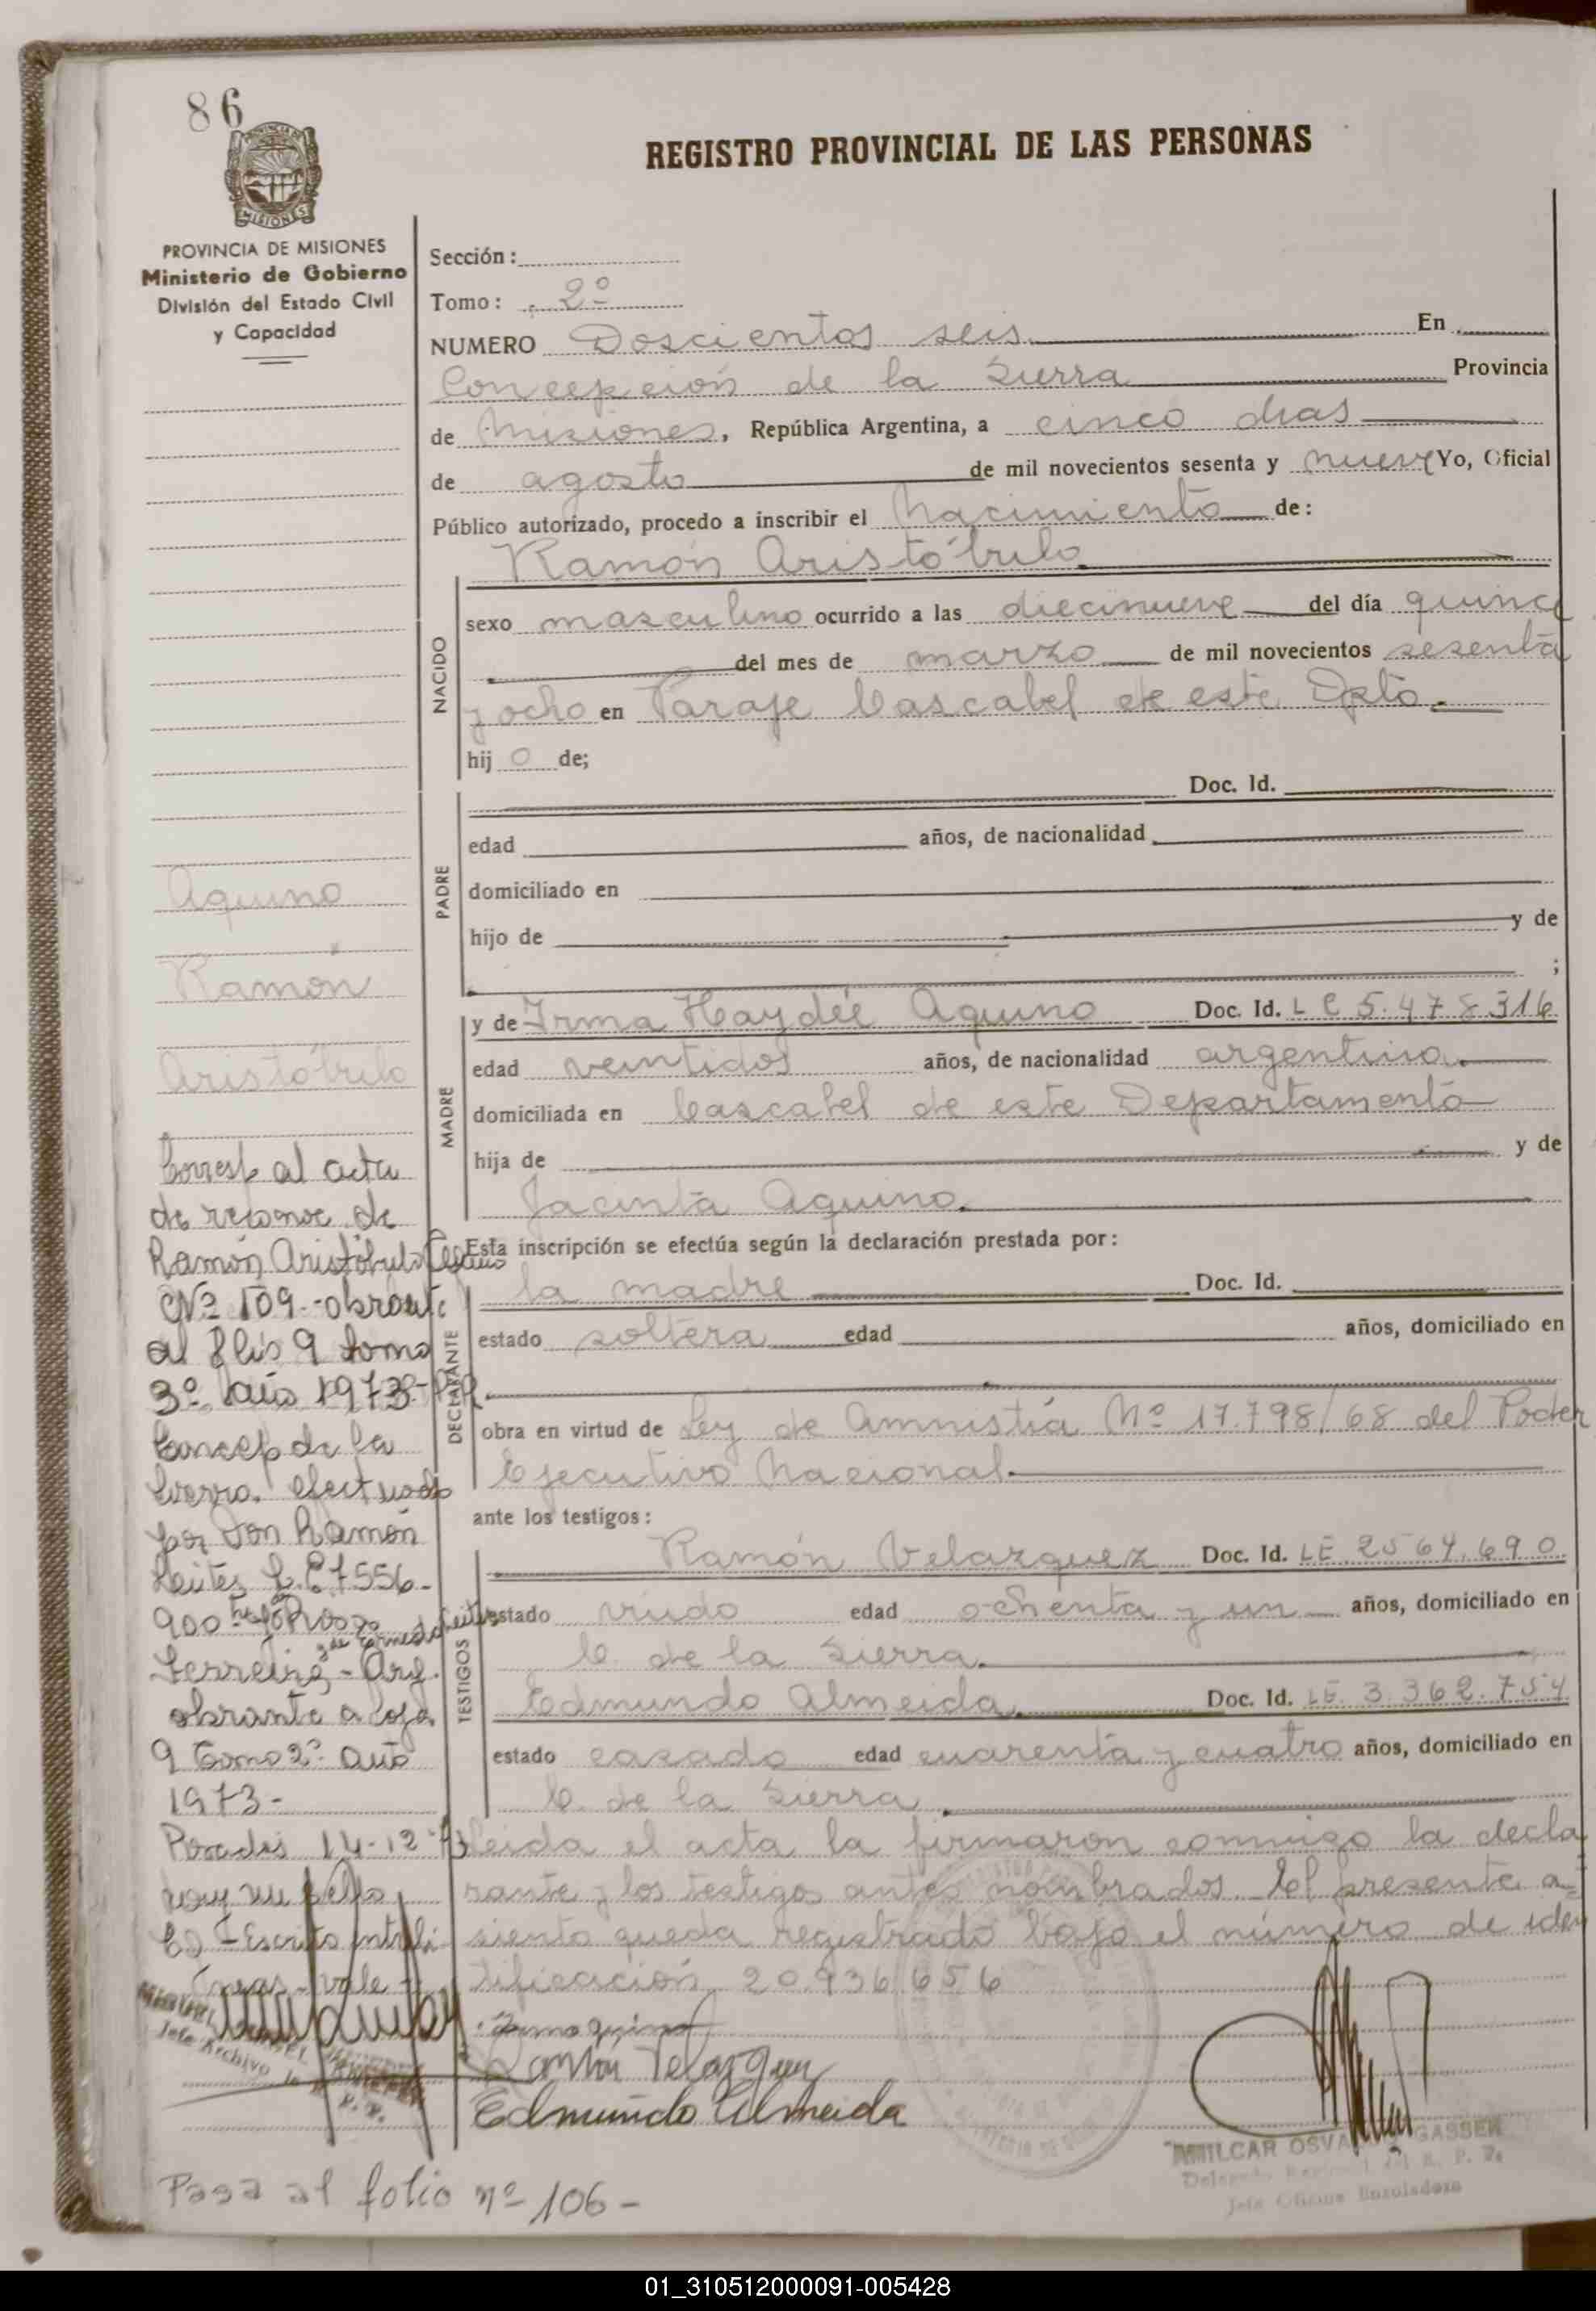 86
REGISTRO PROVINCIAL DE LAS PERSONAS
MISIONES
PROVINCIA DE MISIONES
Ministerio de Gobierno
División del Estado Civil
y Capacidad
Sección:
Tomo: 2º
NUMERO Doscientos seis En
Concepción de la Sierra Provincia
de Misiones, República Argentina, a cinco dias
de agosto de mil novecientos sesenta y nueve Yo, Oficial
Público autorizado, procedo a inscribir el Nacimiento de:
Ramón Aristóbulo
NACIDO
sexo masculino ocurrido a las diecinueve del día quince
del mes de marzo de mil novecientos sesenta
y ocho en Paraje Cascabel de este Dpto.
hij o de;
PADRE
Doc. Id.
edad años, de nacionalidad
domiciliado en
hijo de y de
;
MADRE
y de Irma Haydée Aquino Doc. Id. L C 5.478316
edad veintidos años, de nacionalidad argentina.
domiciliada en Cascabel de este Departamento
hija de y de
Jacinta Aquino.
Esta inscripción se efectúa según la declaración prestada por:
DECLARANTE
la madre Doc. Id.
estado soltera edad años, domiciliado en
obra en virtud de Ley de Amnistía Nº 17.798/68 del Poder
Ejecutivo Nacional.
ante los testigos:
TESTIGOS
Ramón Velazquez Doc. Id. LE 2564.690
estado viudo edad ochenta y un años, domiciliado en
C. de la Sierra.
Edmundo Almeida. Doc. Id. LE 3.362.754
estado casado edad cuarenta y cuatro años, domiciliado en
C. de la Sierra.
Leida el acta la firmaron conmigo la decla
rante y los testigos antes nombrados. El presente a-
siento queda registrado bajo el número de iden
tificación 20.936.656
Ramón Velazquez
Edmundo Almeida
AMILCAR OSVA GASSEN
Delegado R. P. P.
Jefe Oficina Enroladora
Aquino
Ramón
Aristóbulo
Corresp al acta
de reconoc. de
Ramón Aristóbulo Aquino
Nº 109.- obrante
al flio 9 tomo
3º año 1973.-
Concep de la
Sierra. efectuado
por Don Ramón
Leites L.E 7.556-
900
y de Ernesto Leites
Ferreira - Arg.
obrante a foja
9 Tomo 2º año
1973-
Posadas 14-12-73
Escrito entreli
neas - vale -
Jefe Archivo
Pasa al folio nº 106-
01_310512000091-005428